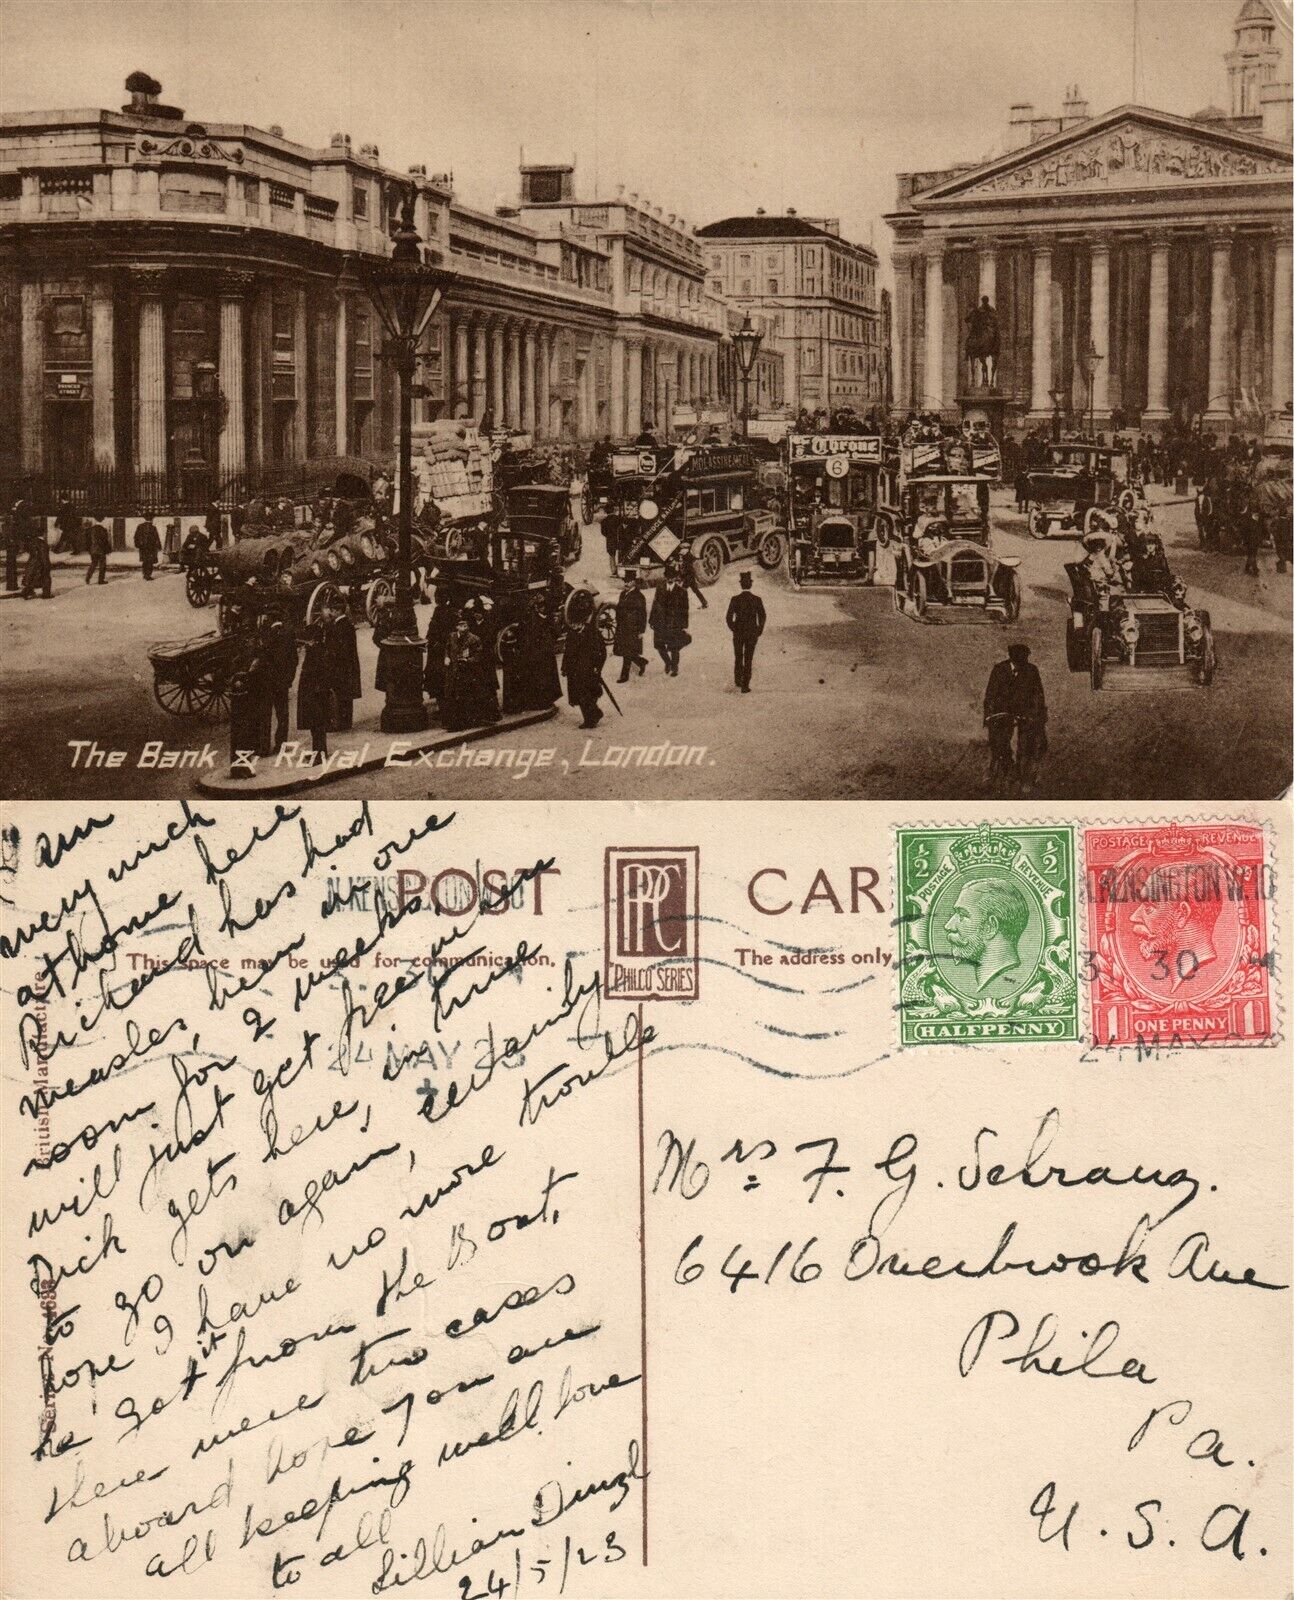 PRINCES
STREET
MOLASSINE MEAL
6
The Bank & Royal Exchange, London.
POST CAR
This space may be used for communication.
The address only
PHILCO SERIES
British Manufacture
Series No.
POSTAGE REVENUE
½ ½
HALFPENNY
POSTAGE REVENUE
1 ONE PENNY 1
N.KENSINGTON W.10
3 30
24 MAY 23
N.KENSINGTON W.10
24 MAY 23
I am
very much
at home here
Richard has had
measles, been in one
room for 2 weeks,
will just get free when
Dick gets here, in time
to go on again, certainly
hope I have no more trouble
he got it from the Boat,
there were two cases
aboard hope you are
all keeping well love
to all
Lillian Dingl
24/5/23
Mrs F. G. Schranz.
6416 Overbrook Ave
Phila
Pa.
U.S.A.